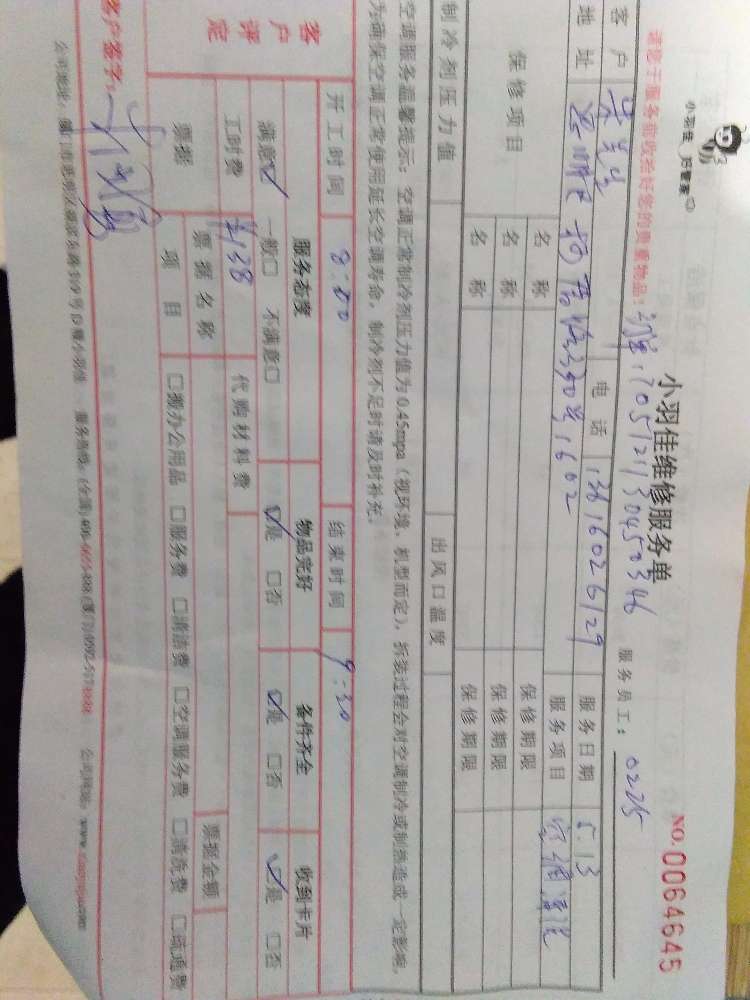 小羽佳 好管家
小羽佳维修服务单
NO.0064645
请您于服务前收拾好您的贵重物品! 服务员工: 0225
客户 吴先生 电话 13616026129 服务日期 5.13
地址 1602 服务项目 空调清洗
保修项目 名称 保修期限
名称 保修期限
名称 保修期限
制冷剂压力值 出风口温度
空调服务温馨提示:空调正常制冷剂压力值为0.45mpa(视环境、机型而定),拆装过程会对空调制冷或制热造成一定影响,
为确保空调正常使用延长空调寿命,制冷剂不足时请及时补充。
开工时间 8:00 结束时间 9:30
客户评定 服务态度 物品完好 备件齐全 收到卡片
满意☑ 一般□ 不满意□ ☑是 □否 ☑是 □否 ☑是 □否
工时费 138 代购材料费
票据 票据名称 票据金额
项目 □搬办公用品 □服务费 □清洁费 □空调服务费 □清洗费 □疏通费
客户签字: